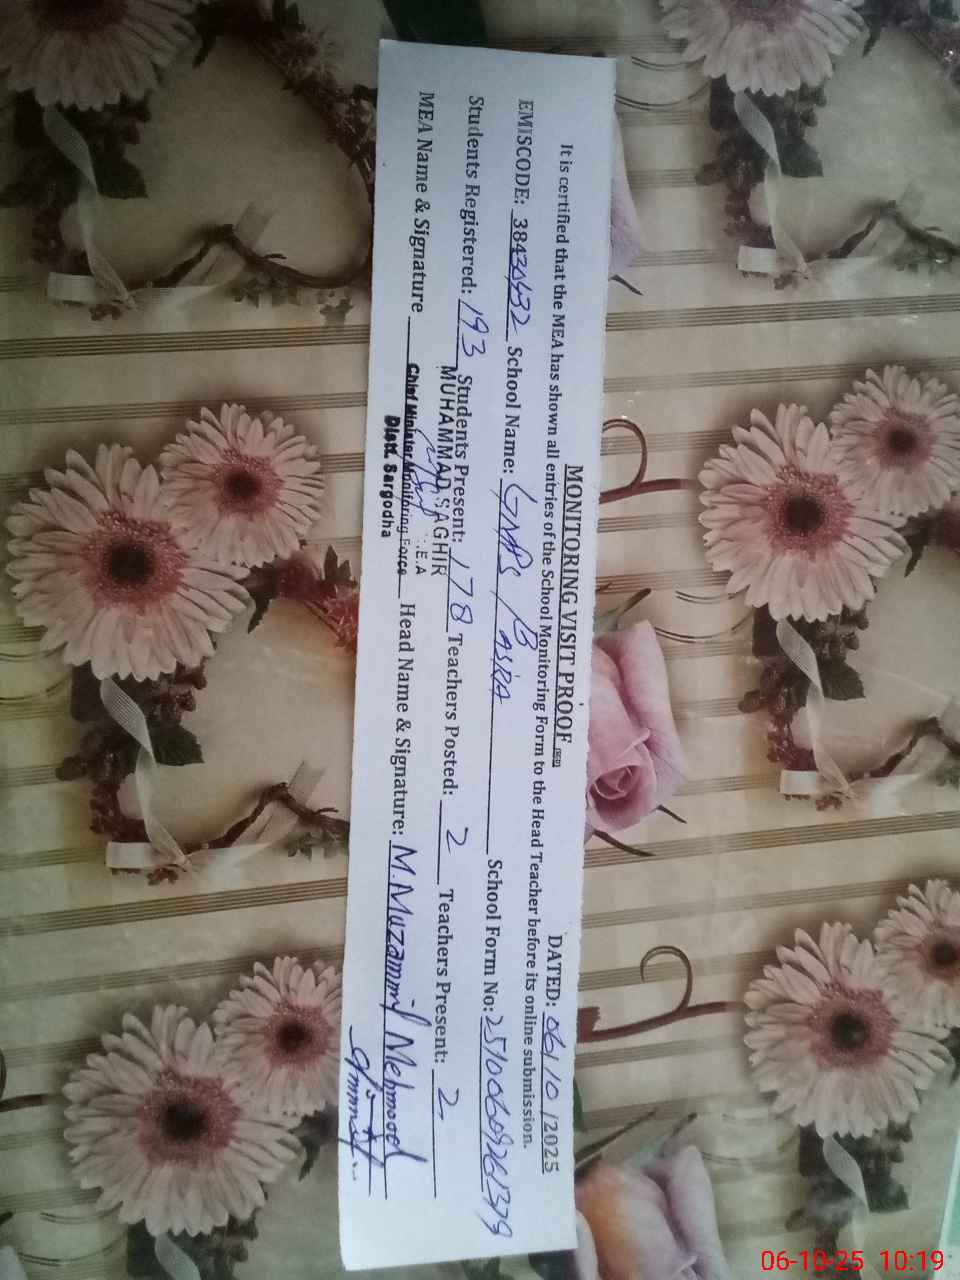 MONITORING VISIT PROOF DATED: 06/10/2025
It is certified that the MEA has shown all entries of the School Monitoring Form to the Head Teacher before its online submission.
EMISCODE: 38430432 School Name: GMPS / B ASIRA School Form No: 25100609261379
Students Registered: 193 Students Present: 178 Teachers Posted: 2 Teachers Present: 2
MUHAMMAD SAGHIR
MEA Name & Signature Head Name & Signature: M. Muzammil Mehmood
Chief Minister Monitoring Force
Distt. Sargodha
06-10-25 10:19